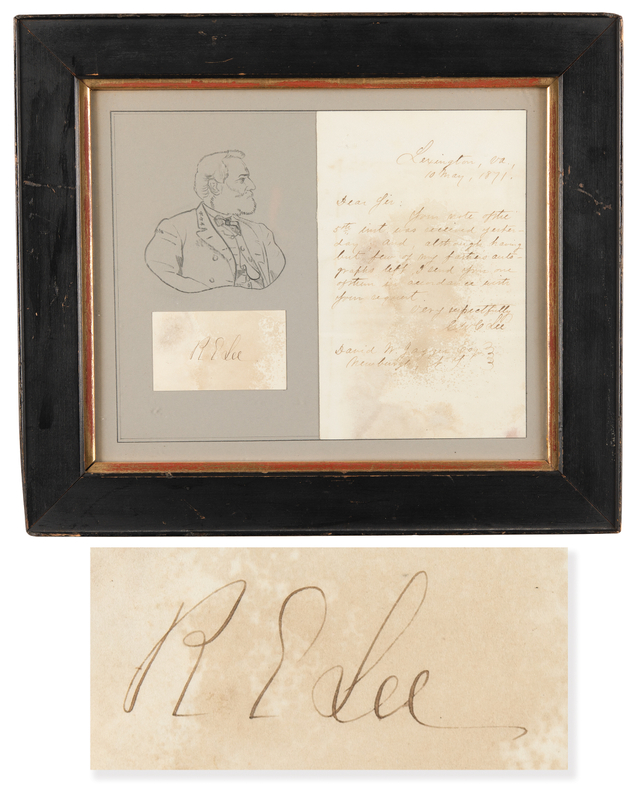 Lexington, Va,
10 May, 1871.
Dear Sir:
Your note of the
5th inst was received yester-
day. And, although having
but few of my father's auto-
graphs left, I send you one
of them in accordance with
your request.
Very respectfully
Lee
David W
Newburgh, N. Y.
R E Lee
R E Lee